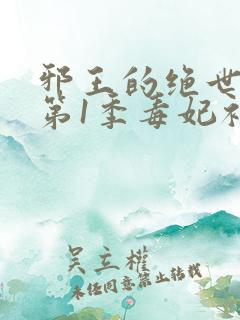 邪王的绝世
第1季毒妃
吴立权
未经同意禁止转载